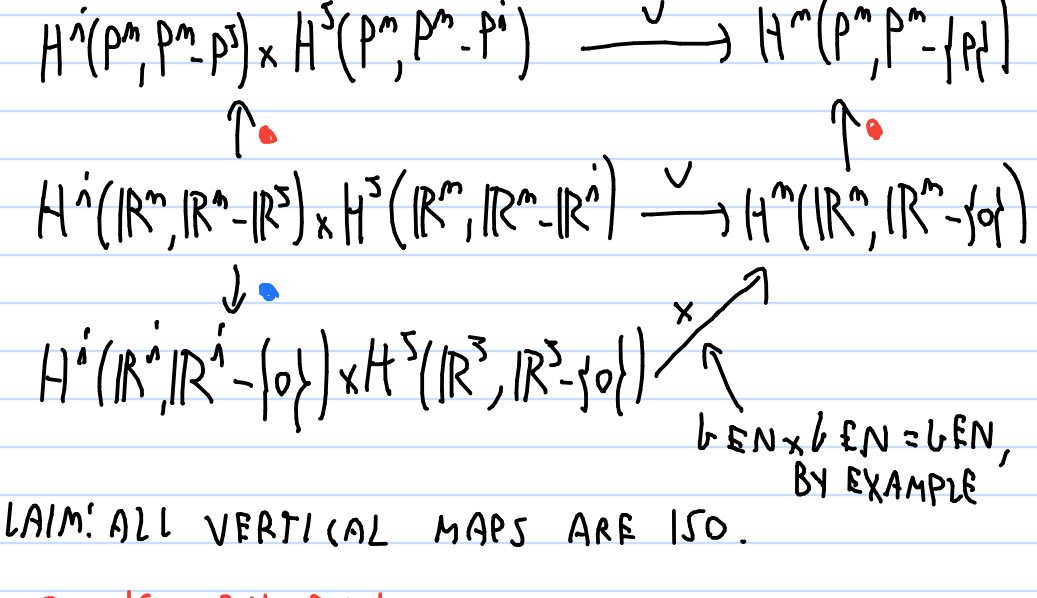 Hⁱ(Pⁿ, Pⁿ-Pʲ) × Hʲ(Pⁿ, Pⁿ-Pⁱ) ∪⟶ Hⁿ(Pⁿ, Pⁿ-{p})
↑ ↑
Hⁱ(ℝⁿ, ℝⁿ-ℝʲ) × Hʲ(ℝⁿ, ℝⁿ-ℝⁱ) ∪⟶ Hⁿ(ℝⁿ, ℝⁿ-{0})
↓
×↗
Hⁱ(ℝⁱ, ℝⁱ-{0}) × Hʲ(ℝʲ, ℝʲ-{0})
GEN × GEN = GEN,
BY EXAMPLE
LAIM: ALL VERTICAL MAPS ARE ISO.